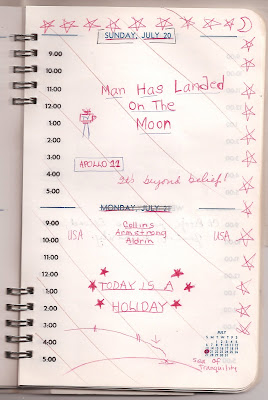 SUNDAY, JULY 20
9:00
Man Has Landed
10:00
on The
11:00
Moon
12:00
1:00
2:00
3:00
APOLLO 11
4:00
It's beyond belief!
5:00
MONDAY, JULY 21
9:00
Collins
USA Armstrong USA
10:00
Aldrin
11:00
12:00
1:00
TODAY IS A
2:00
HOLIDAY
3:00
4:00
JULY
5:00
Sea of
Tranquility